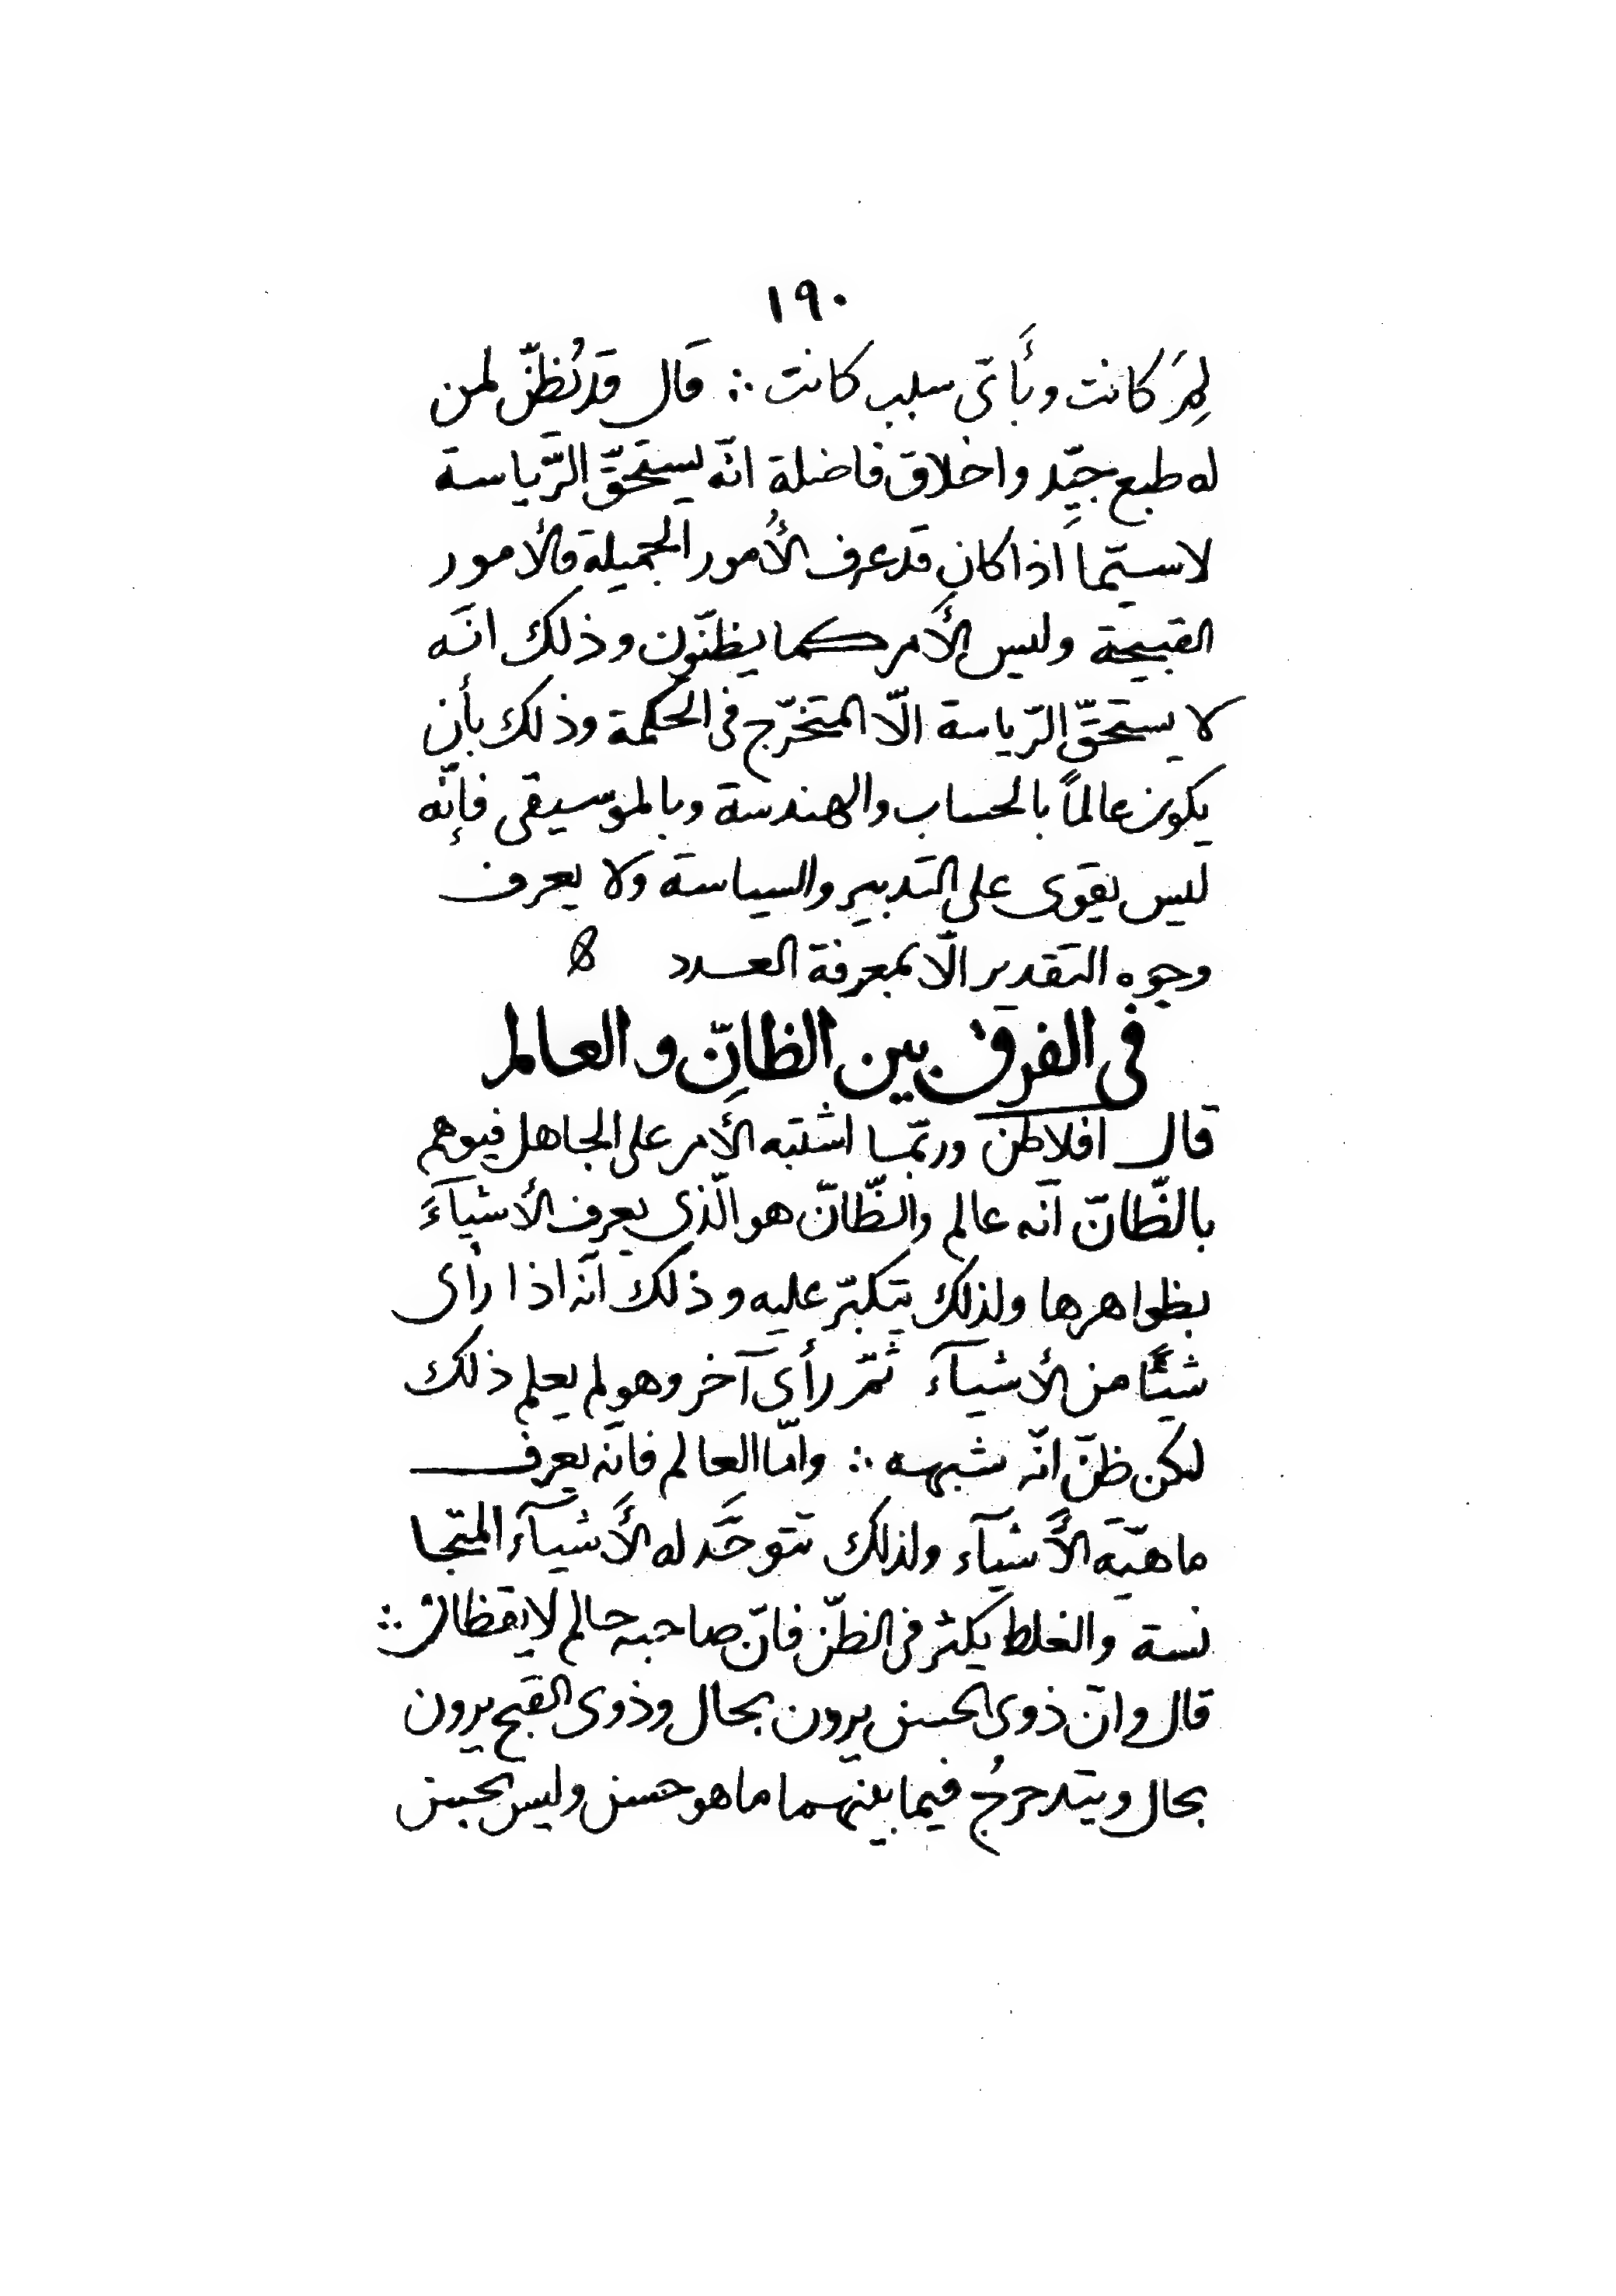 ١٩٠
لِمَ كانت وبأَىّ سبب كانت ؞ قَال قَد يُظنّ لمن
له طبع جيِّد واخلاق فاضلة انّه يستحقّ الرّياسة
لاسيّما اذا كان قد عرف الأُمور الجميلة والأمور
القبيحة وليس الأَمر كما يظنّون وذلك انّه
لا يستحقّ الرّياسة الّا المتخرّج فى الحكمة وذلك بأن
يكون عالماً بالحساب والهندسة وبالموسيقى فإنّه
ليس يقوى على التدبير والسياسة ولا يعرف
وجوه التقدير الّا بمعرفة العدد
فى الفرق بين الظانِّ والعالم
قال افلاطن وربّما اشتبه الأَمر على الجاهل فيوهم
بالظّانّ انّه عالم والظّانّ هو الّذى يعرف الأشيآءَ
بظواهرها ولذلك يتكبّر عليه وذلك انّه اذا رأى
شيئًا من الأشيآء ثمّ رأى آخر وهو لم يعلم ذلك
لكن ظنّ انّه شبهه ؞ وامّا العالم فانّه يعرف
ماهيّة الأَشيآء ولذلك تتوحَّد له الأَشيآء المتجا
نسة والغلط يكثر فى الظنّ فانّ صاحبه حالم لا يقظان ؞
قال وانّ ذوى الحسن يرون بحال وذوى القبح يرون
بحال ويتدحرجُ فيما بينهما ما هو حسن وليس بحسن